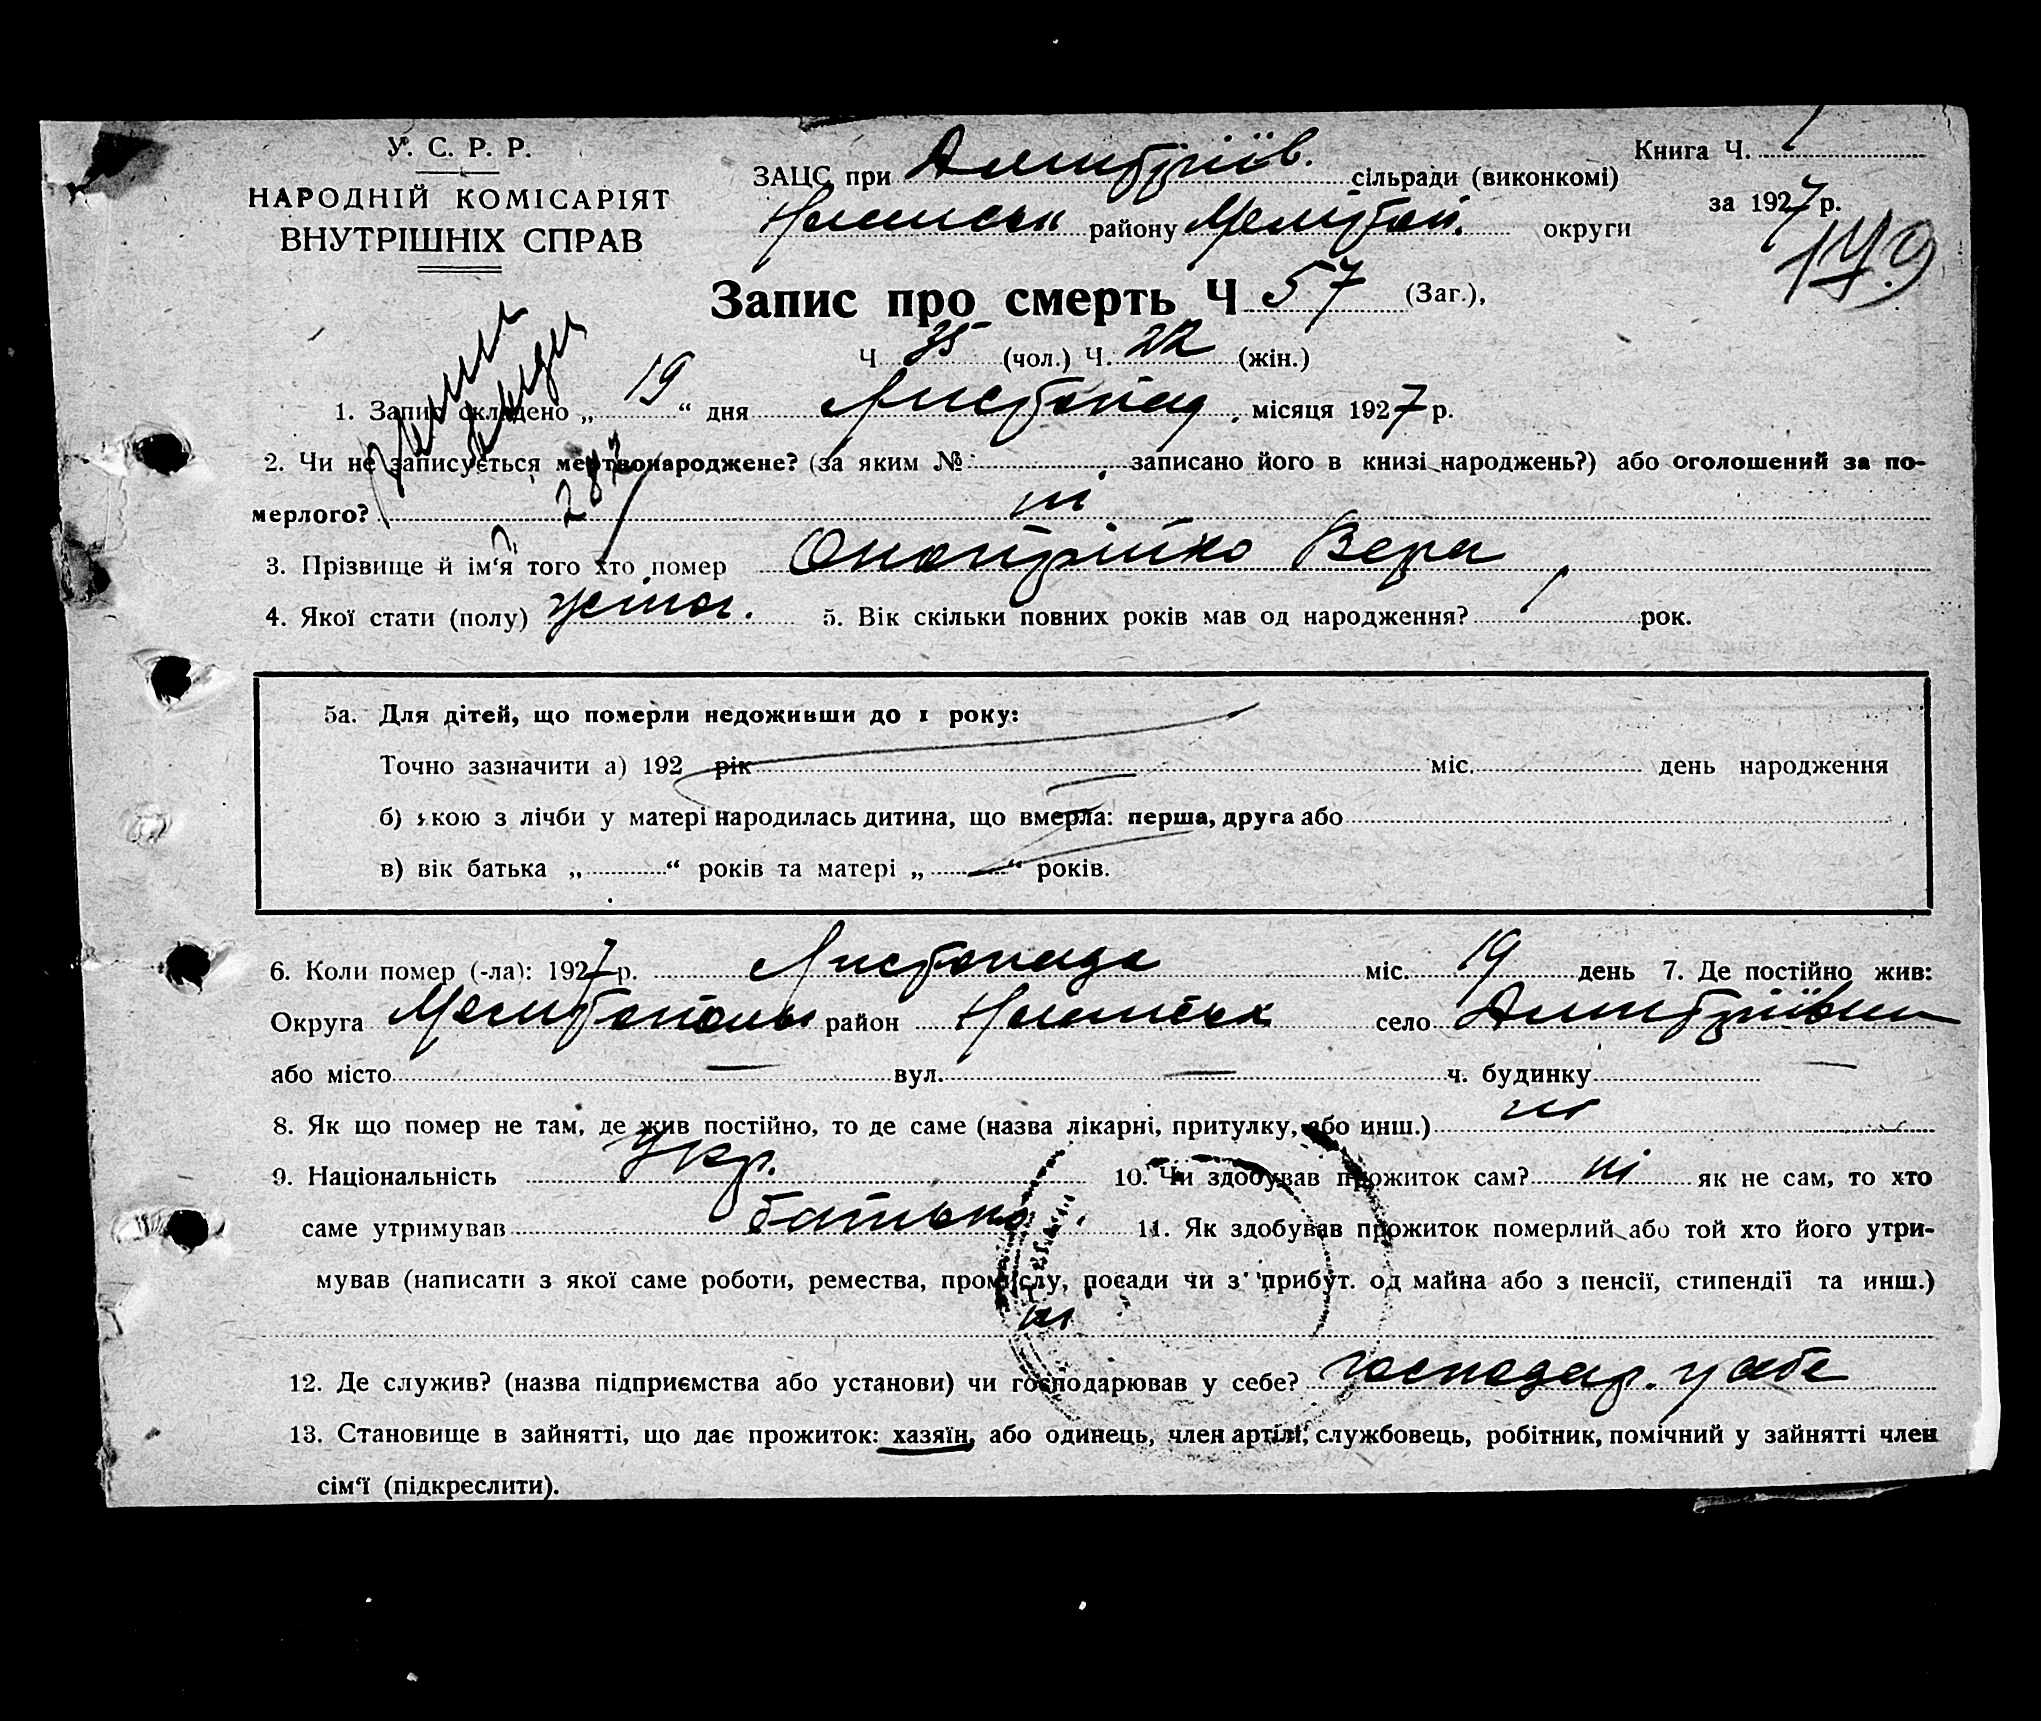 У. С. Р. Р.
НАРОДНІЙ КОМІСАРІЯТ
ВНУТРІШНІХ СПРАВ
ЗАЦС при Дмитріїв. сільради (виконкомі)
району Мелітоп. округи
Книга Ч. 1
за 1927 р.
179
Запис про смерть Ч 57 (Заг.),
Ч 35 (чол.) Ч. 22 (жін.)
1. Запис складено „ 19 “ дня Листопад. місяця 1927 р.
2. Чи не записується мертвонароджене? (за яким № записано його в книзі народжень?) або оголошений за по-
мерлого? ні
3. Прізвище й ім‘я того хто помер Онопрійко Вера
4. Якої стати (полу) жіноч. 5. Вік скільки повних років мав од народження? 1 рок.
5а. Для дітей, що померли недоживши до 1 року:
Точно зазначити а) 192 рік міс. день народження
б) якою з лічби у матері народилась дитина, що вмерла: перша, друга або
в) вік батька „ “ років та матері „ “ років.
6. Коли помер (-ла): 1927 р. Листопада міс. 19 день 7. Де постійно жив:
Округа район село Дмитріївка
або місто — вул. — ч. будинку —
8. Як що помер не там, де жив постійно, то де саме (назва лікарні, притулку, або инш.) ні
9. Національність Укр. 10. Чи здобував прожиток сам? ні як не сам, то хто
саме утримував батько 11. Як здобував прожиток померлий або той хто його утри-
мував (написати з якої саме роботи, ремества, промислу, посади чи з прибут. од майна або з пенсії, стипендії та инш.)
ні
12. Де служив? (назва підприємства або установи) чи господарював у себе? господар. у себе
13. Становище в зайнятті, що дає прожиток: хазяїн, або одинець, член артілі, службовець, робітник, помічний у зайнятті член
сім‘ї (підкреслити).